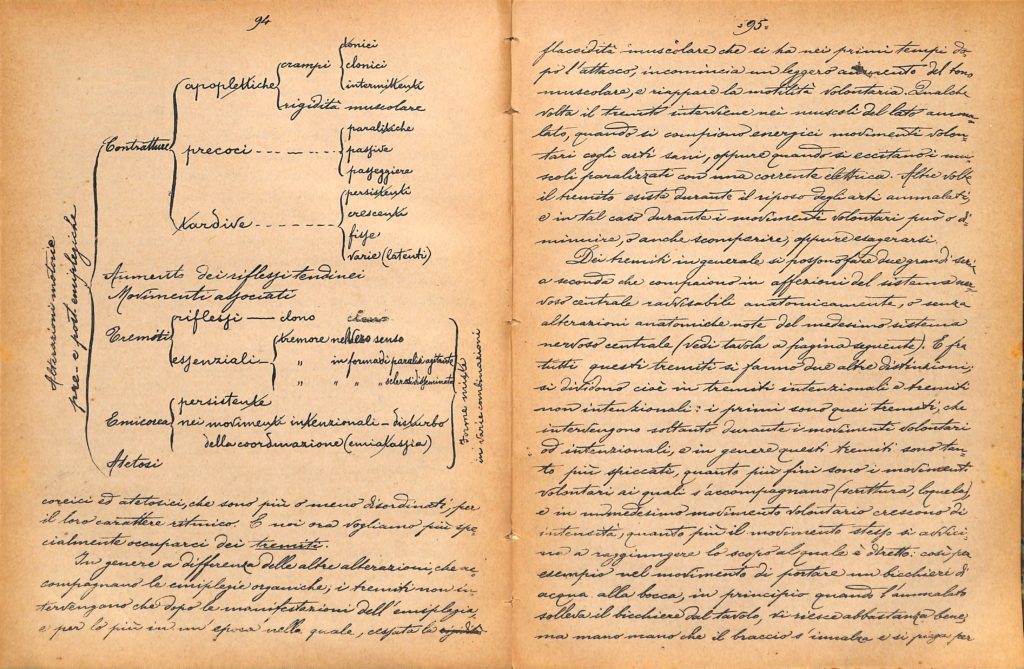 94
Alterazioni motorie
pre- e post emiplegiche
Contratture
apoplettiche
crampi
tonici
clonici
intermittenti
rigidità muscolare
precoci
paralitiche
passive
passeggiere
tardive
persistenti
crescenti
fisse
varie (latenti)
Aumento dei riflessi tendinei
Movimenti associati
Tremoti
riflessi — clono
essenziali
tremore nel vero senso
„ in forma di paralisi agitante
„ „ „ sclerosi disseminata
Emicorea
persistente
nei movimenti intenzionali – disturbo
della coordinazione (emiatassia)
Atetosi
Forme miste
in varie combinazioni
coreici ed atetosici, che sono più o meno disordinati, per
il loro carattere ritmico. E noi ora vogliamo più spe-
cialmente occuparci dei tremiti.
In genere a differenza delle altre alterazioni, che ac-
compagnano le emiplegie organiche, i tremiti non in-
tervengono che dopo le manifestazioni dell'emiplegia,
e per lo più in un'epoca nella quale, cessata la rigidità
95
flaccidità muscolare che si ha nei primi tempi do-
po l'attacco, incomincia un leggero aumento del tono
muscolare, e riappare la motilità volontaria. Qualche
volta il tremito interviene nei muscoli del lato amma-
lato, quando si compiono energici movimenti volon-
tari cogli arti sani, oppure quando si eccitano i mu-
scoli paralizzati con una corrente elettrica. Altre volte
il tremito esiste durante il riposo degli arti ammalati,
e in tal caso durante i movimenti volontari può o di-
minuire, o anche scomparire, oppure esagerarsi.
Dei tremiti in generale si possono fare due grandi serie
a seconda che compaiono in affezioni del sistema ner-
voso centrale ravvisabili anatomicamente, o senza
alterazioni anatomiche note del medesimo sistema
nervoso centrale (vedi tavola a pagina seguente). E fra
tutti questi tremiti si fanno due altre distinzioni;
si dividono cioè in tremiti intenzionali e tremiti
non intenzionali: i primi sono quei tremiti, che
intervengono soltanto durante i movimenti volontari
od intenzionali, e in genere questi tremiti sono tan-
to più spiccati, quanto più fini sono i movimenti
volontari ai quali s'accompagnano (scrittura, loquela),
e in un medesimo movimento volontario crescono di
intensità, quanto più il movimento stesso si avvici-
na a raggiungere lo scopo al quale è diretto: così per
esempio nel movimento di portare un bicchiere di
acqua alla bocca, in principio quando l'ammalato
solleva il bicchiere dal tavolo, vi riesce abbastanza bene,
ma mano mano che il braccio s'innalza e si piega per